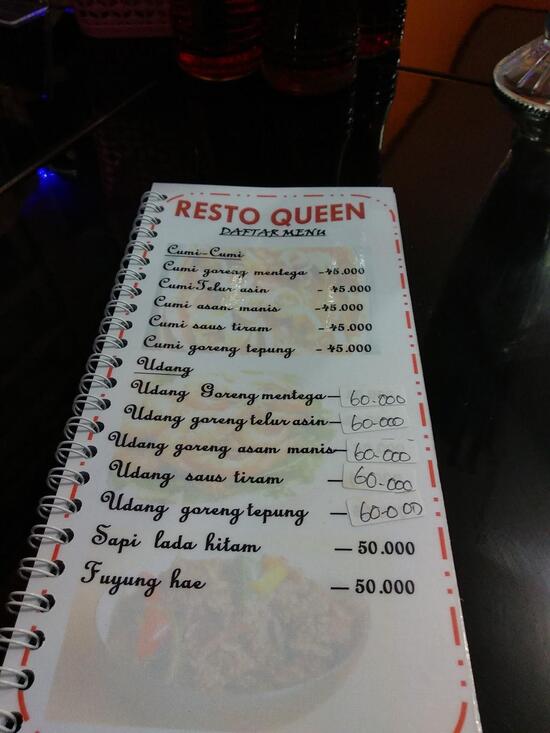 RESTO QUEEN
DAFTAR MENU
Cumi-Cumi
Cumi goreng mentega -45.000
Cumi Telur asin - 45.000
Cumi asam manis -45.000
Cumi saus tiram - 45.000
Cumi goreng tepung - 45.000
Udang
Udang Goreng mentega- 60.000
Udang goreng telur asin- 60.000
Udang goreng asam manis- 60.000
Udang saus tiram - 60.000
Udang goreng tepung - 60.000
Sapi lada hitam - 50.000
Fuyung hae - 50.000